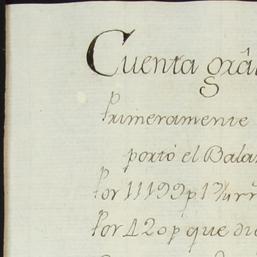 Cuenta grâl
Primeramente
portó el Bala
Por 11199p 1
Por 420p que di